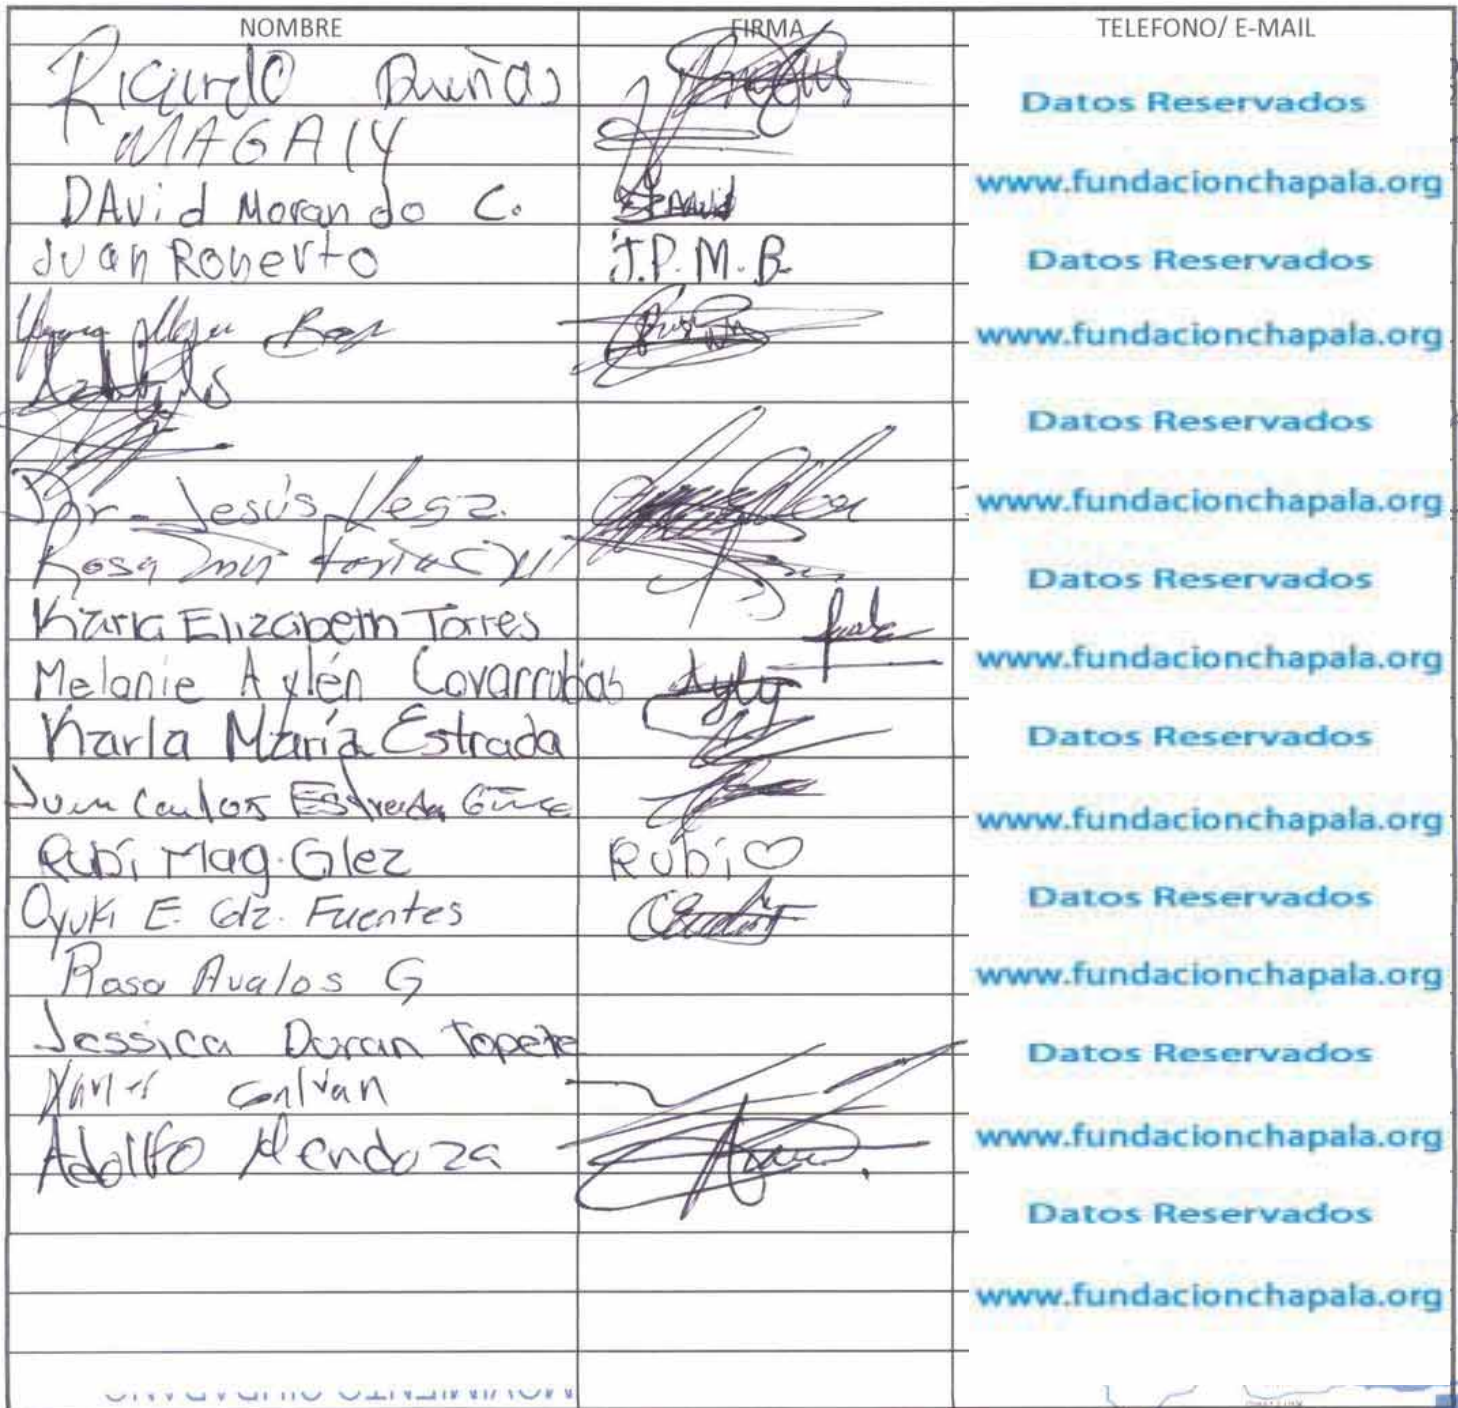 NOMBRE FIRMA TELEFONO/ E-MAIL
Ricardo Dueñas
Datos Reservados
MAGALY
DAvid Morando C. www.fundacionchapala.org
Juan Roberto J.P.M.B. Datos Reservados
www.fundacionchapala.org
Datos Reservados
Dr. Jesús Vega. www.fundacionchapala.org
Rosa
Datos Reservados
Karla Elizabeth Torres
Melanie Aylén Covarrubias www.fundacionchapala.org
Karla María Estrada Datos Reservados
Juan Carlos Estrada www.fundacionchapala.org
Rubí Mag. Glez Rubí♡
Oyuki E. Glz. Fuentes Datos Reservados
Rosa Avalos G www.fundacionchapala.org
Jessica Duran Topete Datos Reservados
Galvan
Adolfo Mendoza www.fundacionchapala.org
Datos Reservados
www.fundacionchapala.org